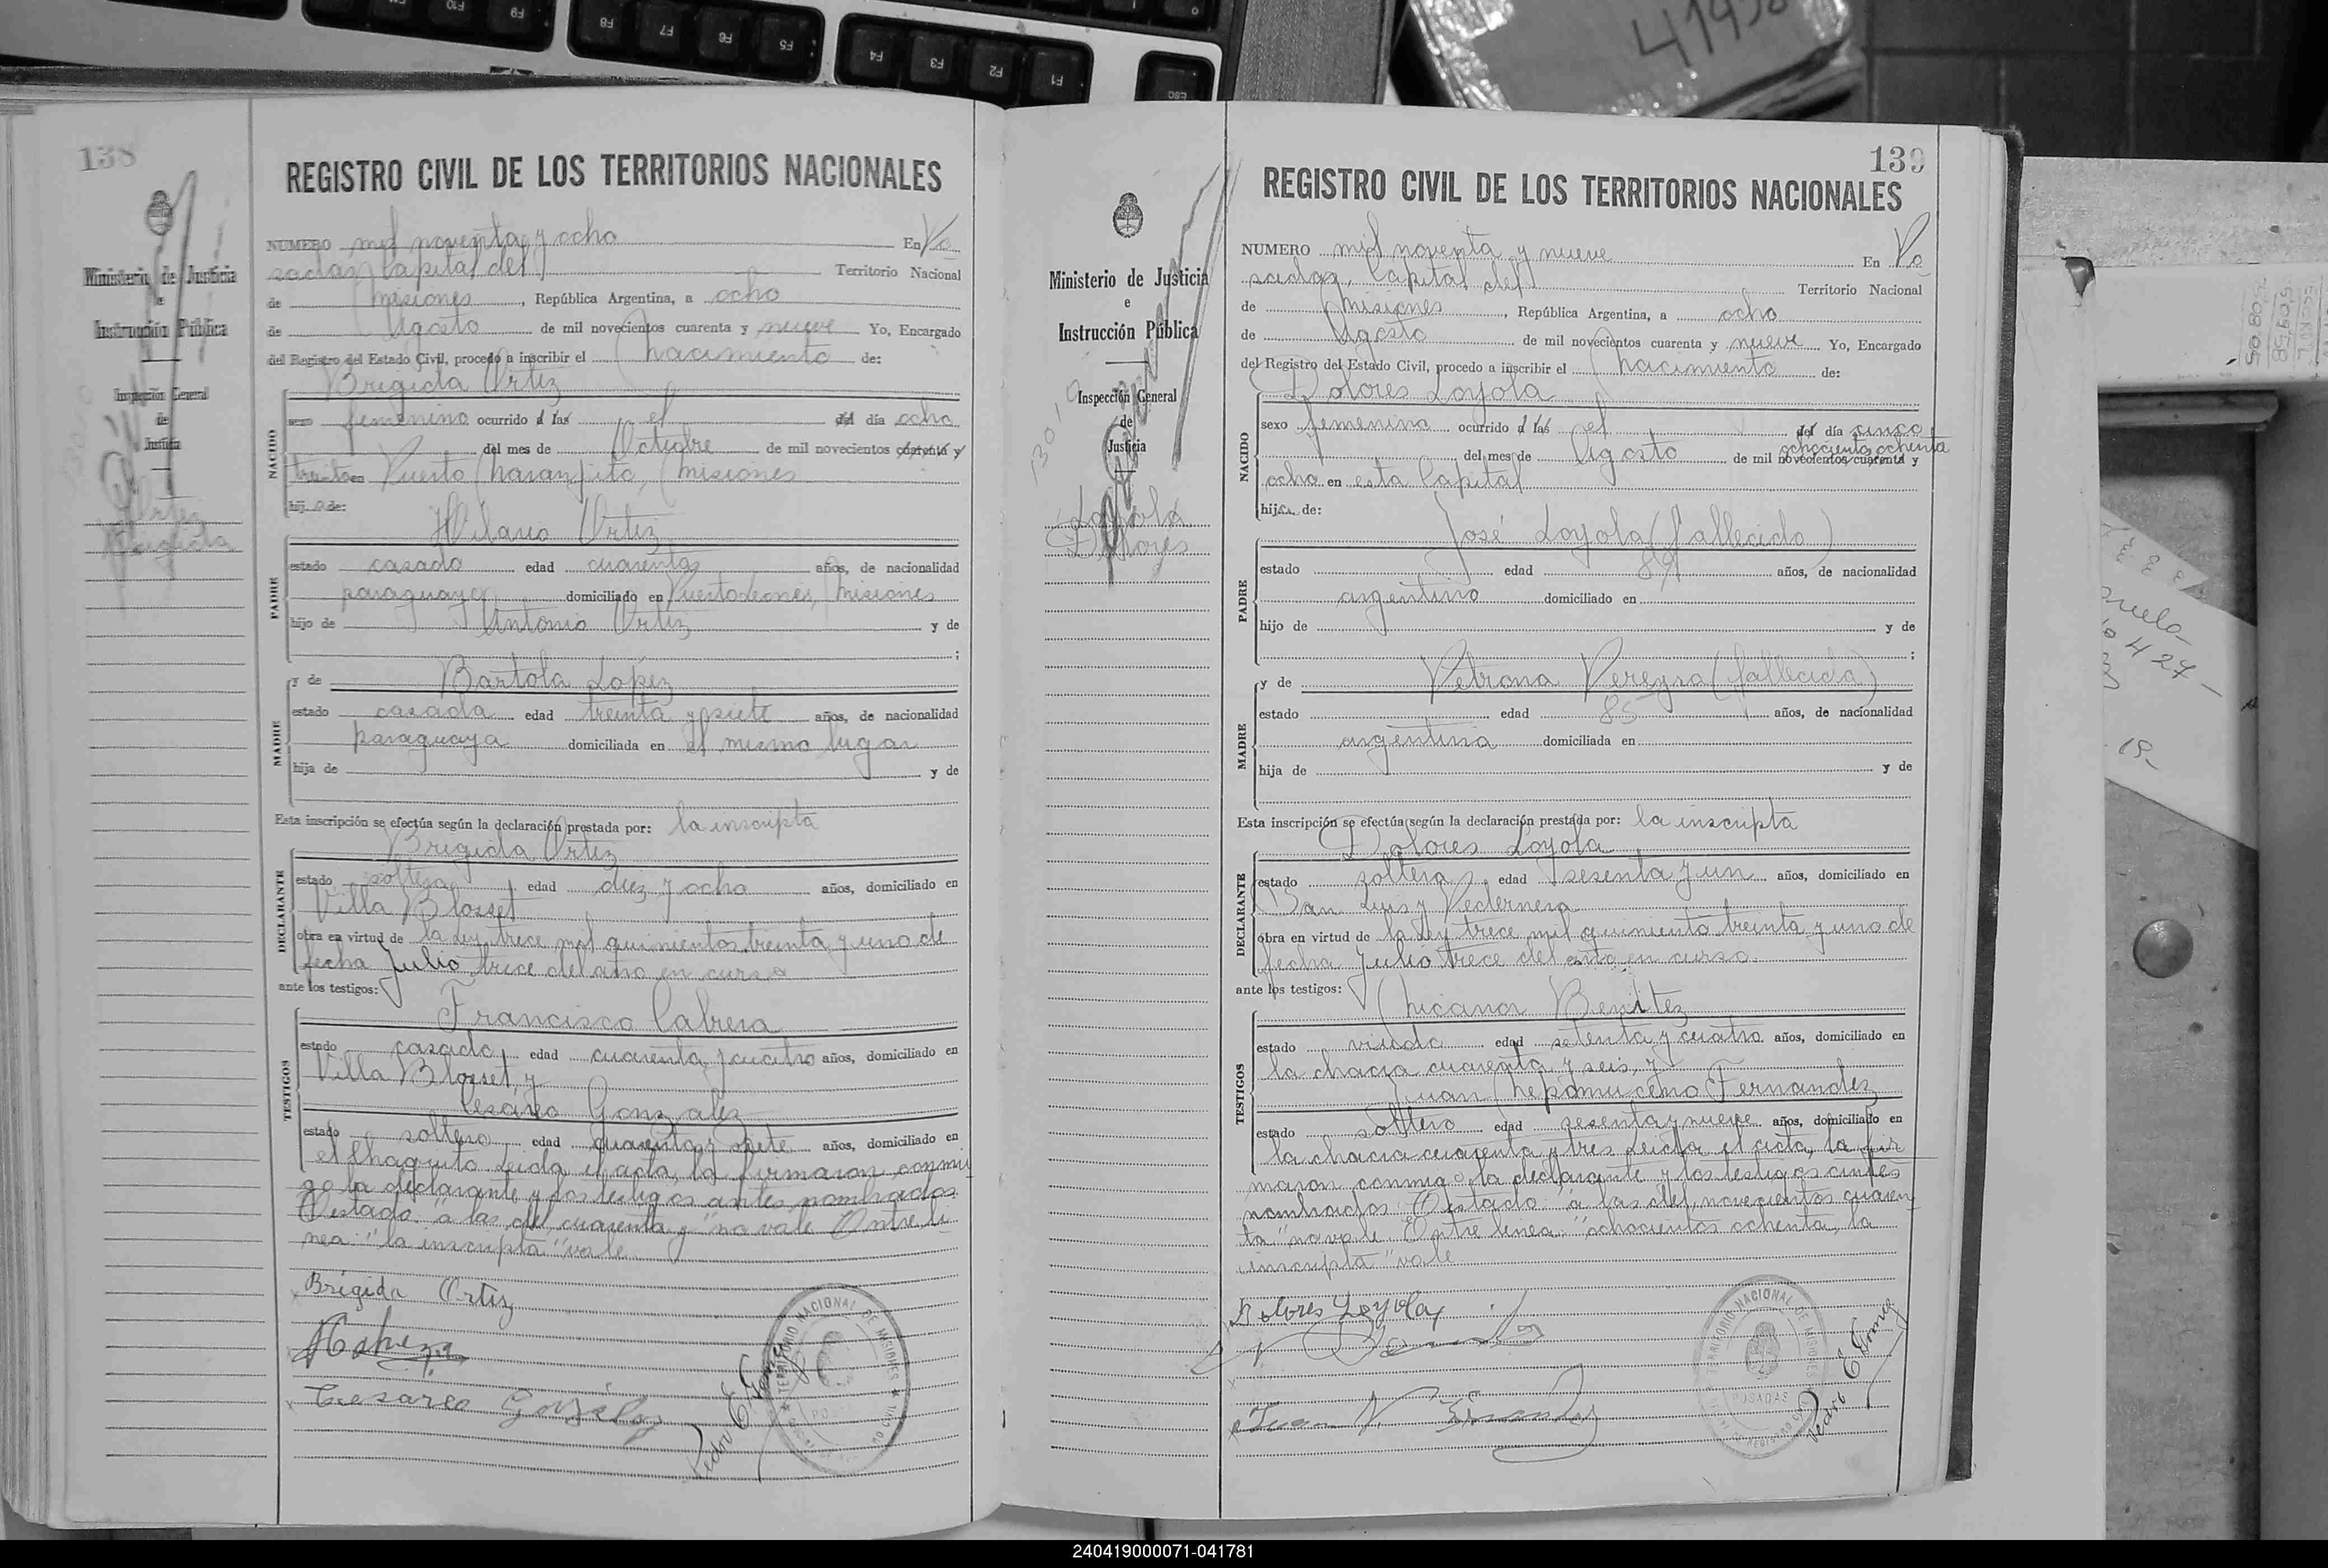 138
REGISTRO CIVIL DE LOS TERRITORIOS NACIONALES
Ministerio de Justicia
e
Instrucción Pública
Inspección General
de
Justicia
Ortiz
Brigida
NUMERO mil noventa y ocho En Po
sadas, Capital del Territorio Nacional
de Misiones, República Argentina, a ocho
de Agosto de mil novecientos cuarenta y nueve Yo, Encargado
del Registro del Estado Civil, procedo a inscribir el nacimiento de:
Brigida Ortiz
NACIDO
sexo femenino ocurrido á las el del día ocho
del mes de Octubre de mil novecientos cuarenta y
treinta en Puerto Naranjito, Misiones
hija de:
Hilario Ortiz
PADRE
estado casado edad cuarenta años, de nacionalidad
paraguayo domiciliado en Puerto Leones, Misiones
hijo de Antonio Ortiz y de
;
y de Bartola Lopez
MADRE
estado casada edad treinta y siete años, de nacionalidad
paraguaya domiciliada en el mismo lugar
hija de y de
Esta inscripción se efectúa según la declaración prestada por: la inscripta
Brigida Ortiz
DECLARANTE
estado soltera edad diez y ocho años, domiciliado en
Villa Blosset
obra en virtud de la Ley trece mil quinientos treinta y uno de
fecha Julio trece del año en curso
ante los testigos:
Francisco Cabrera
TESTIGOS
estado casado edad cuarenta y cuatro años, domiciliado en
Villa Blosset, y
Cesáreo Gonzalez
estado soltero edad cuarenta y siete años, domiciliado en
el Chaquito. Leída el acta, la firmaron conmi
go la declarante y los testigos antes nombrados
Testado: "á las, del, cuarenta y" no vale Entre li
nea: "la inscripta" vale
Brígida Ortiz
Cesareo González
Pedro E.
TERRITORIO NACIONAL DE MISIONES
139
REGISTRO CIVIL DE LOS TERRITORIOS NACIONALES
Ministerio de Justicia
e
Instrucción Pública
Inspección General
de
Justicia
Loyola
Dolores
NUMERO mil noventa y nueve En Po
sadas, Capital del Territorio Nacional
de Misiones, República Argentina, a ocho
de Agosto de mil novecientos cuarenta y nueve Yo, Encargado
del Registro del Estado Civil, procedo a inscribir el nacimiento de:
Dolores Loyola
NACIDO
sexo femenino ocurrido á las el del día cinco
ochocientos ochenta
del mes de Agosto de mil novecientos cuarenta y
ocho en esta Capital
hija de:
José Loyola (fallecido)
PADRE
estado edad 89 años, de nacionalidad
argentino domiciliado en
hijo de y de
;
y de Petrona Pereyra (fallecida)
MADRE
estado edad 85 años, de nacionalidad
argentina domiciliada en
hija de y de
Esta inscripción se efectúa según la declaración prestada por: la inscripta
Dolores Loyola
DECLARANTE
estado soltera edad sesenta y un años, domiciliado en
San Luis y Pedernera
obra en virtud de la Ley trece mil quinientos treinta y uno de
fecha Julio trece del año en curso.
ante los testigos:
Nicanor Benitez
TESTIGOS
estado viudo edad setenta y cuatro años, domiciliado en
la chacra cuarenta y seis, y
Juan Nepomuceno Fernandez
estado soltero edad sesenta y nueve años, domiciliado en
la chacra cuarenta y tres Leída el acta, la fir
maron conmigo la declarante y los testigos antes
nombrados Testado: "á las del, novecientos cuaren
ta" no vale Entre linea: "ochocientos ochenta, la
inscripta" vale
Dolores Loyola
Juan N.
Pedro E.
TERRITORIO NACIONAL DE MISIONES
POSADAS
240419000071-041781
F10
F9
F8
F7
F6
F5
F4
F3
F2
F1
ESC